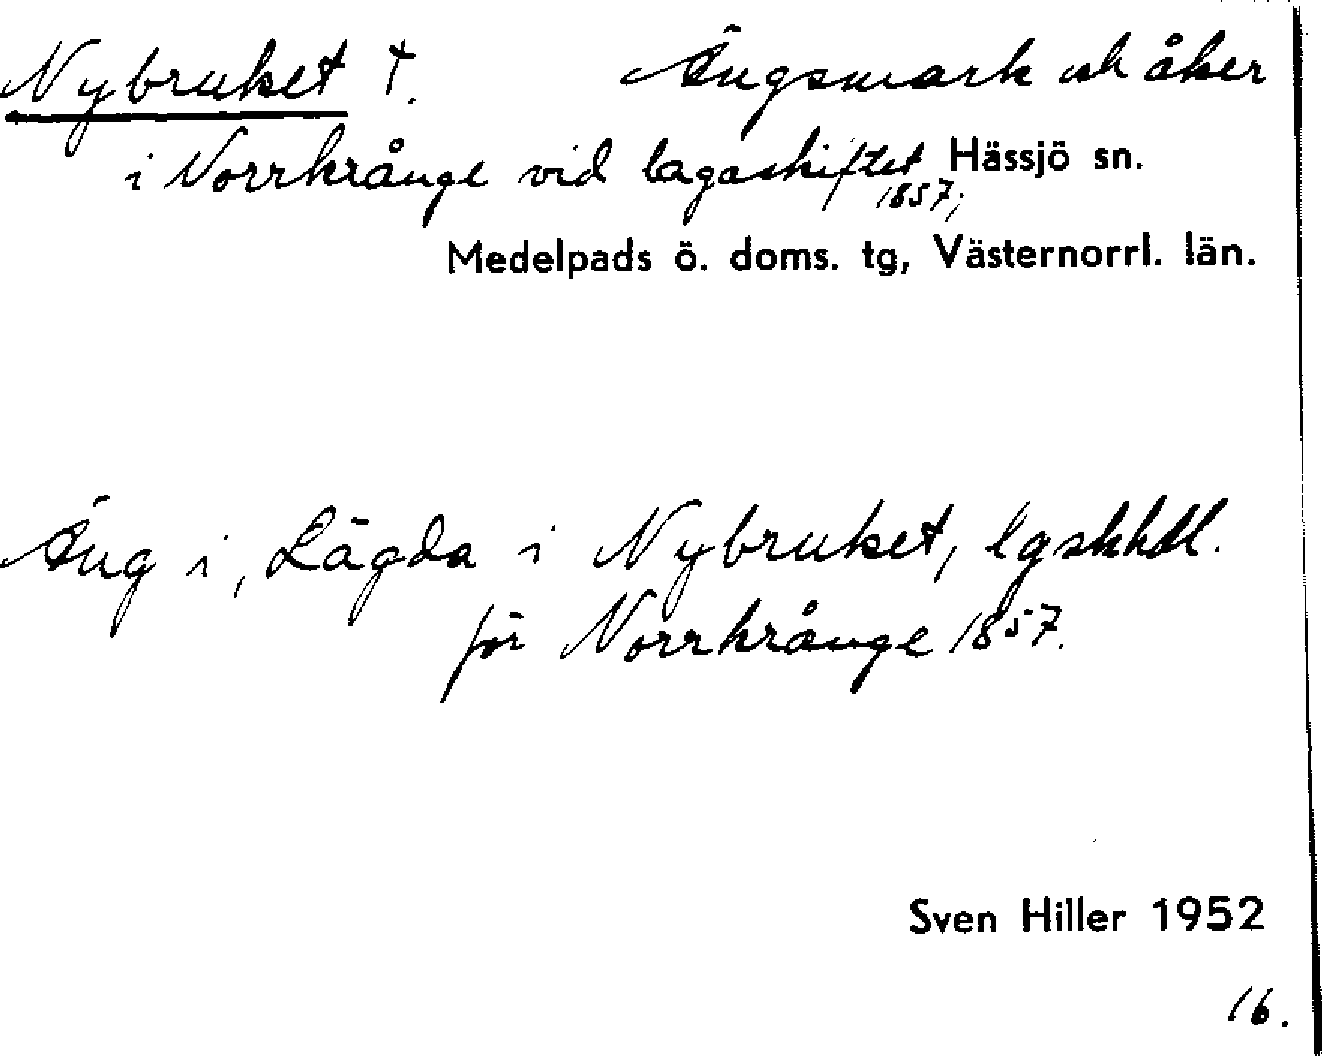 Nybruket †. Ängsmark och åker
i Norrkrånge vid lagaskiftet Hässjö sn.
1857;
Medelpads ö. doms. tg, Västernorrl. län.
Äng i, Lägda i Nybruket, lgskhdl.
för Norrkrånge 1857.
Sven Hiller 1952
16.